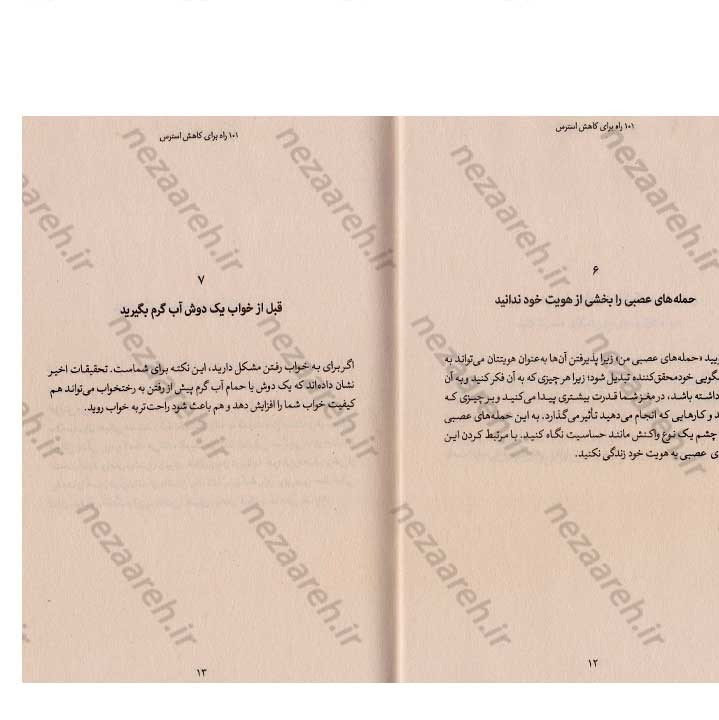 ۱۰۱ راه برای کاهش استرس
۶
حمله‌های عصبی را بخشی از هویت خود ندانید
«حمله‌های عصبی من» زیرا پذیرفتن آن‌ها به‌عنوان هویتتان می‌تواند به
خودمحقق‌کننده تبدیل شود؛ زیرا هر چیزی که به آن فکر کنید و به آن
داشته باشد، در مغز شما قدرت بیشتری پیدا می‌کنید و بر چیزی که
و کارهایی که انجام می‌دهید تأثیر می‌گذارد. به این حمله‌های عصبی
چشم یک نوع واکنش مانند حساسیت نگاه کنید. با مرتبط کردن این
عصبی به هویت خود زندگی نکنید.
۱۲
۱۰۱ راه برای کاهش استرس
۷
قبل از خواب یک دوش آب گرم بگیرید
اگر برای به خواب رفتن مشکل دارید، این نکته برای شماست. تحقیقات اخیر
نشان داده‌اند که یک دوش یا حمام آب گرم پیش از رفتن به رختخواب می‌تواند هم
کیفیت خواب شما را افزایش دهد و هم باعث شود راحت‌تر به خواب روید.
۱۳
nezaareh.ir
nezaareh.ir
nezaareh.ir
nezaareh.ir
nezaareh.ir
nezaareh.ir
nezaareh.ir
nezaareh.ir
nezaareh.ir
nezaareh.ir
nezaareh.ir